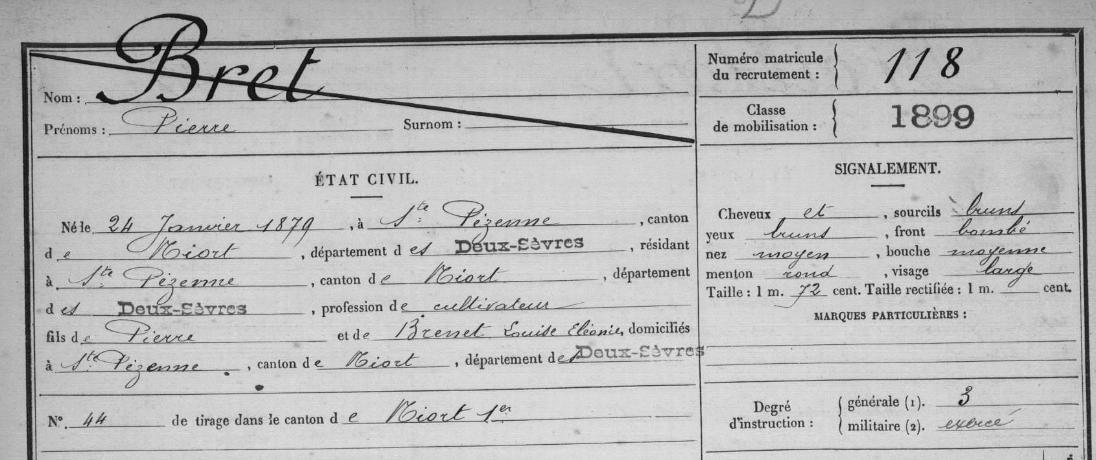 Nom : Bret
Prénoms : Pierre Surnom :
Numéro matricule
du recrutement : 118
Classe
de mobilisation : 1899
ÉTAT CIVIL.
Né le 24 Janvier 1879, à Ste Pézenne, canton
de Niort, département des Deux-Sèvres, résidant
à Ste Pézenne, canton de Niort, département
des Deux-Sèvres, profession de cultivateur
fils de Pierre et de Louise Eléonie, domiciliés
à Ste Pézenne, canton de Niort, département des Deux-Sèvres
No. 44 de tirage dans le canton de Niort 1er
SIGNALEMENT.
Cheveux et, sourcils bruns
yeux bruns, front bombé
nez moyen, bouche moyenne
menton rond, visage large
Taille : 1 m. 72 cent. Taille rectifiée : 1 m. cent.
MARQUES PARTICULIÈRES :
Degré
d'instruction :
générale (1). 3
militaire (2). exercé